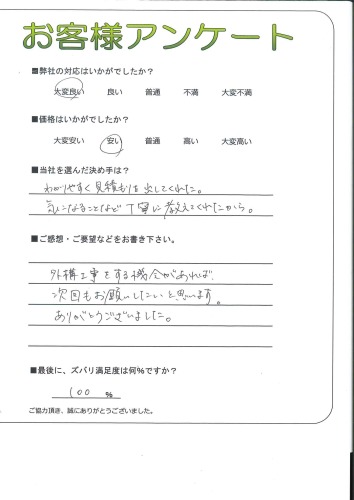 お客様アンケート
■弊社の対応はいかがでしたか？
大変良い 良い 普通 不満 大変不満
■価格はいかがでしたか？
大変安い 安い 普通 高い 大変高い
■当社を選んだ決め手は？
わかりやすく見積もりを出してくれた。
気になることなど丁寧に教えてくれたから。
■ご感想・ご要望などをお書き下さい。
外構工事をする機会があれば、
次回もお願いしたいと思います。
ありがとうございました。
■最後に、ズバリ満足度は何%ですか？
100 %
ご協力頂き、誠にありがとうございました。